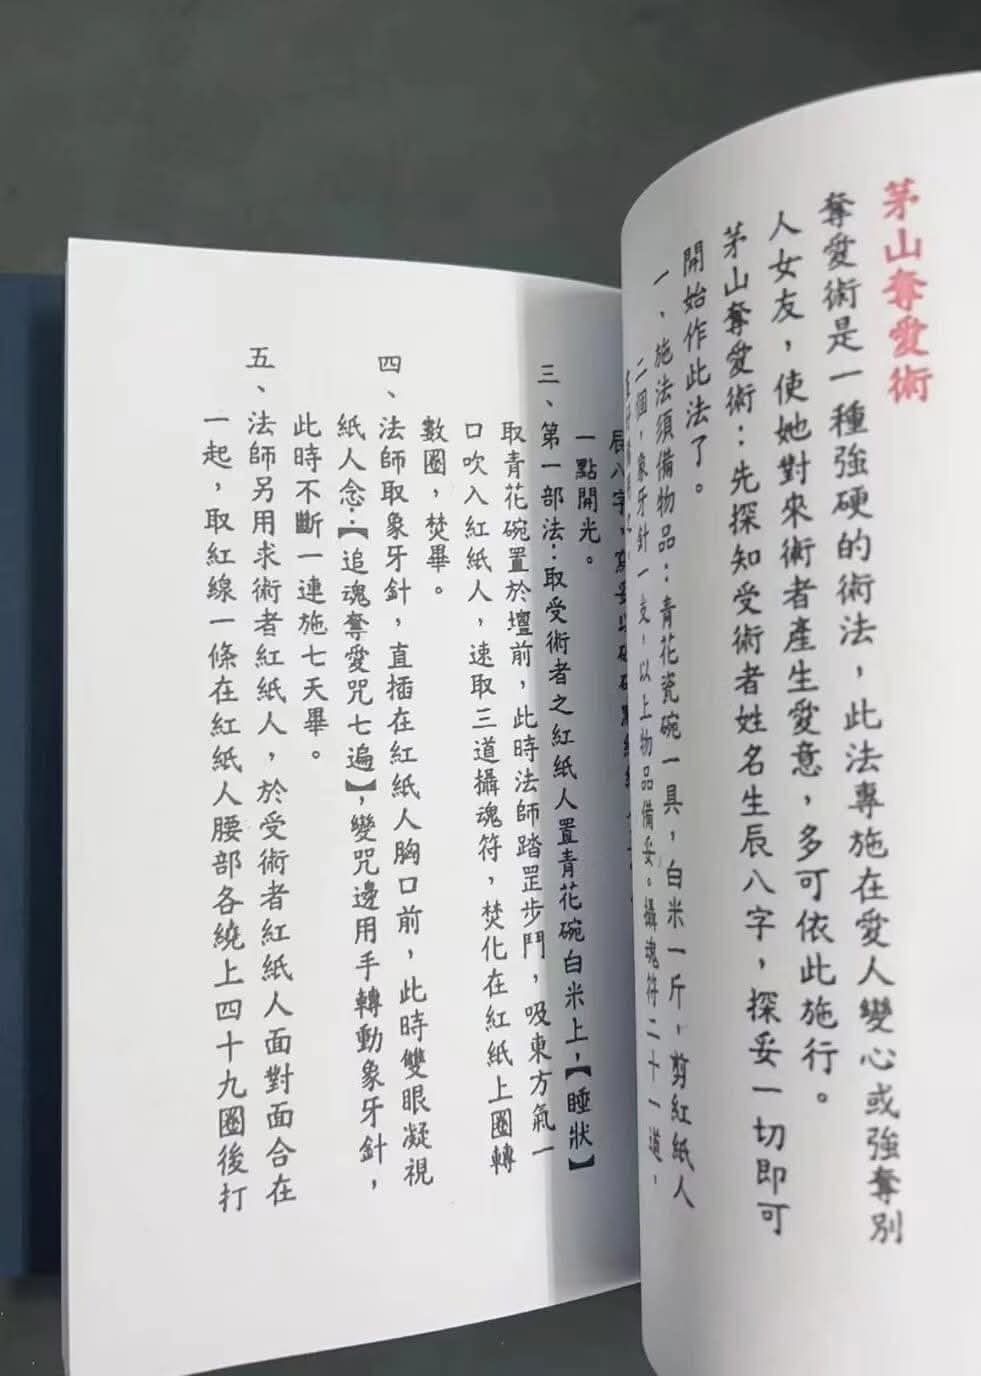 茅山奪愛術
奪愛術是一種強硬的術法，此法專施在愛人變心或強奪別
人女友，使她對來術者產生愛意，多可依此施行。
茅山奪愛術：先探知受術者姓名生辰八字，探妥一切即可
開始作此法了。
一、施法須備物品：青花瓷碗一具，白米一斤，剪紅紙人
二個，象牙針一支，以上物品備妥。攝魂符二十一道，
辰八字，寫妥
一點開光。
三、第一部法：取受術者之紅紙人置青花碗白米上，【睡狀】
取青花碗置於壇前，此時法師踏罡步鬥，吸東方氣一
口吹入紅紙人，速取三道攝魂符，焚化在紅紙上圈轉
數圈，焚畢。
四、法師取象牙針，直插在紅紙人胸口前，此時雙眼凝視
紙人念：【追魂奪愛咒七遍】，變咒邊用手轉動象牙針，
此時不斷一連施七天畢。
五、法師另用求術者紅紙人，於受術者紅紙人面對面合在
一起，取紅線一條在紅紙人腰部各繞上四十九圈後打